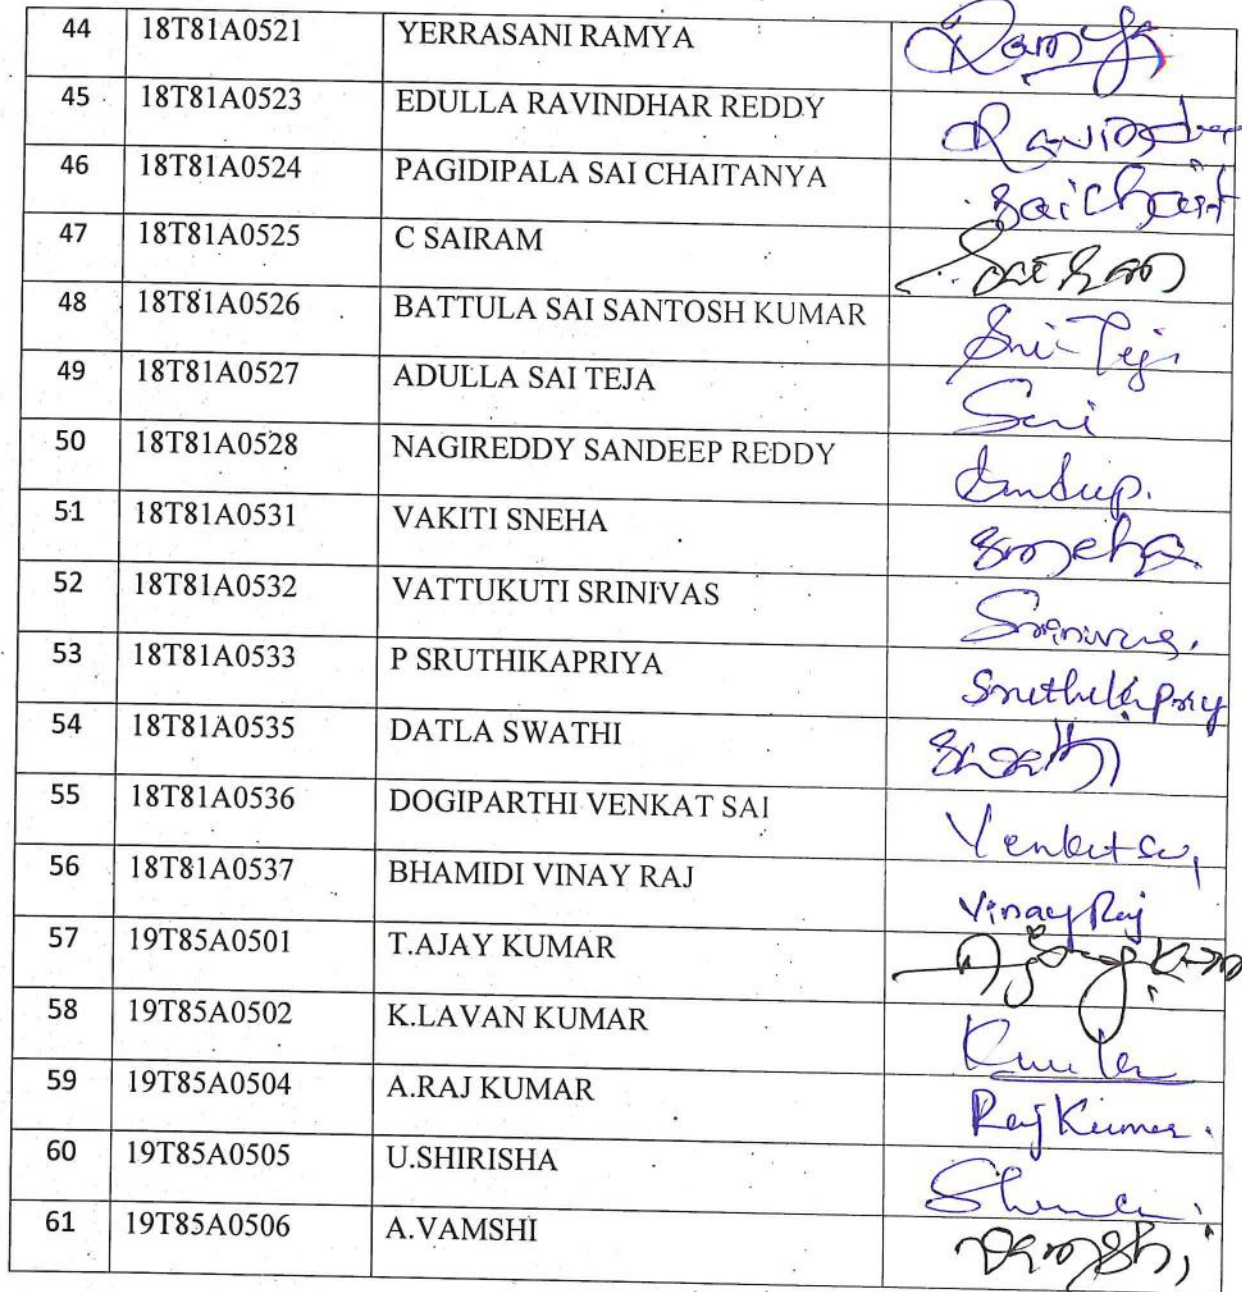 44 18T81A0521 YERRASANI RAMYA Ramya
45 18T81A0523 EDULLA RAVINDHAR REDDY Ravinder
46 18T81A0524 PAGIDIPALA SAI CHAITANYA
47 18T81A0525 C SAIRAM Sai Ram
48 18T81A0526 BATTULA SAI SANTOSH KUMAR Sri-Teja
49 18T81A0527 ADULLA SAI TEJA Sai
50 18T81A0528 NAGIREDDY SANDEEP REDDY
51 18T81A0531 VAKITI SNEHA Sneha
52 18T81A0532 VATTUKUTI SRINIVAS Srinivas.
53 18T81A0533 P SRUTHIKAPRIYA
54 18T81A0535 DATLA SWATHI Swathi
55 18T81A0536 DOGIPARTHI VENKAT SAI
56 18T81A0537 BHAMIDI VINAY RAJ Vinay Raj
57 19T85A0501 T.AJAY KUMAR
58 19T85A0502 K.LAVAN KUMAR
59 19T85A0504 A.RAJ KUMAR Raj Kumar.
60 19T85A0505 U.SHIRISHA
61 19T85A0506 A.VAMSHI Vamshi